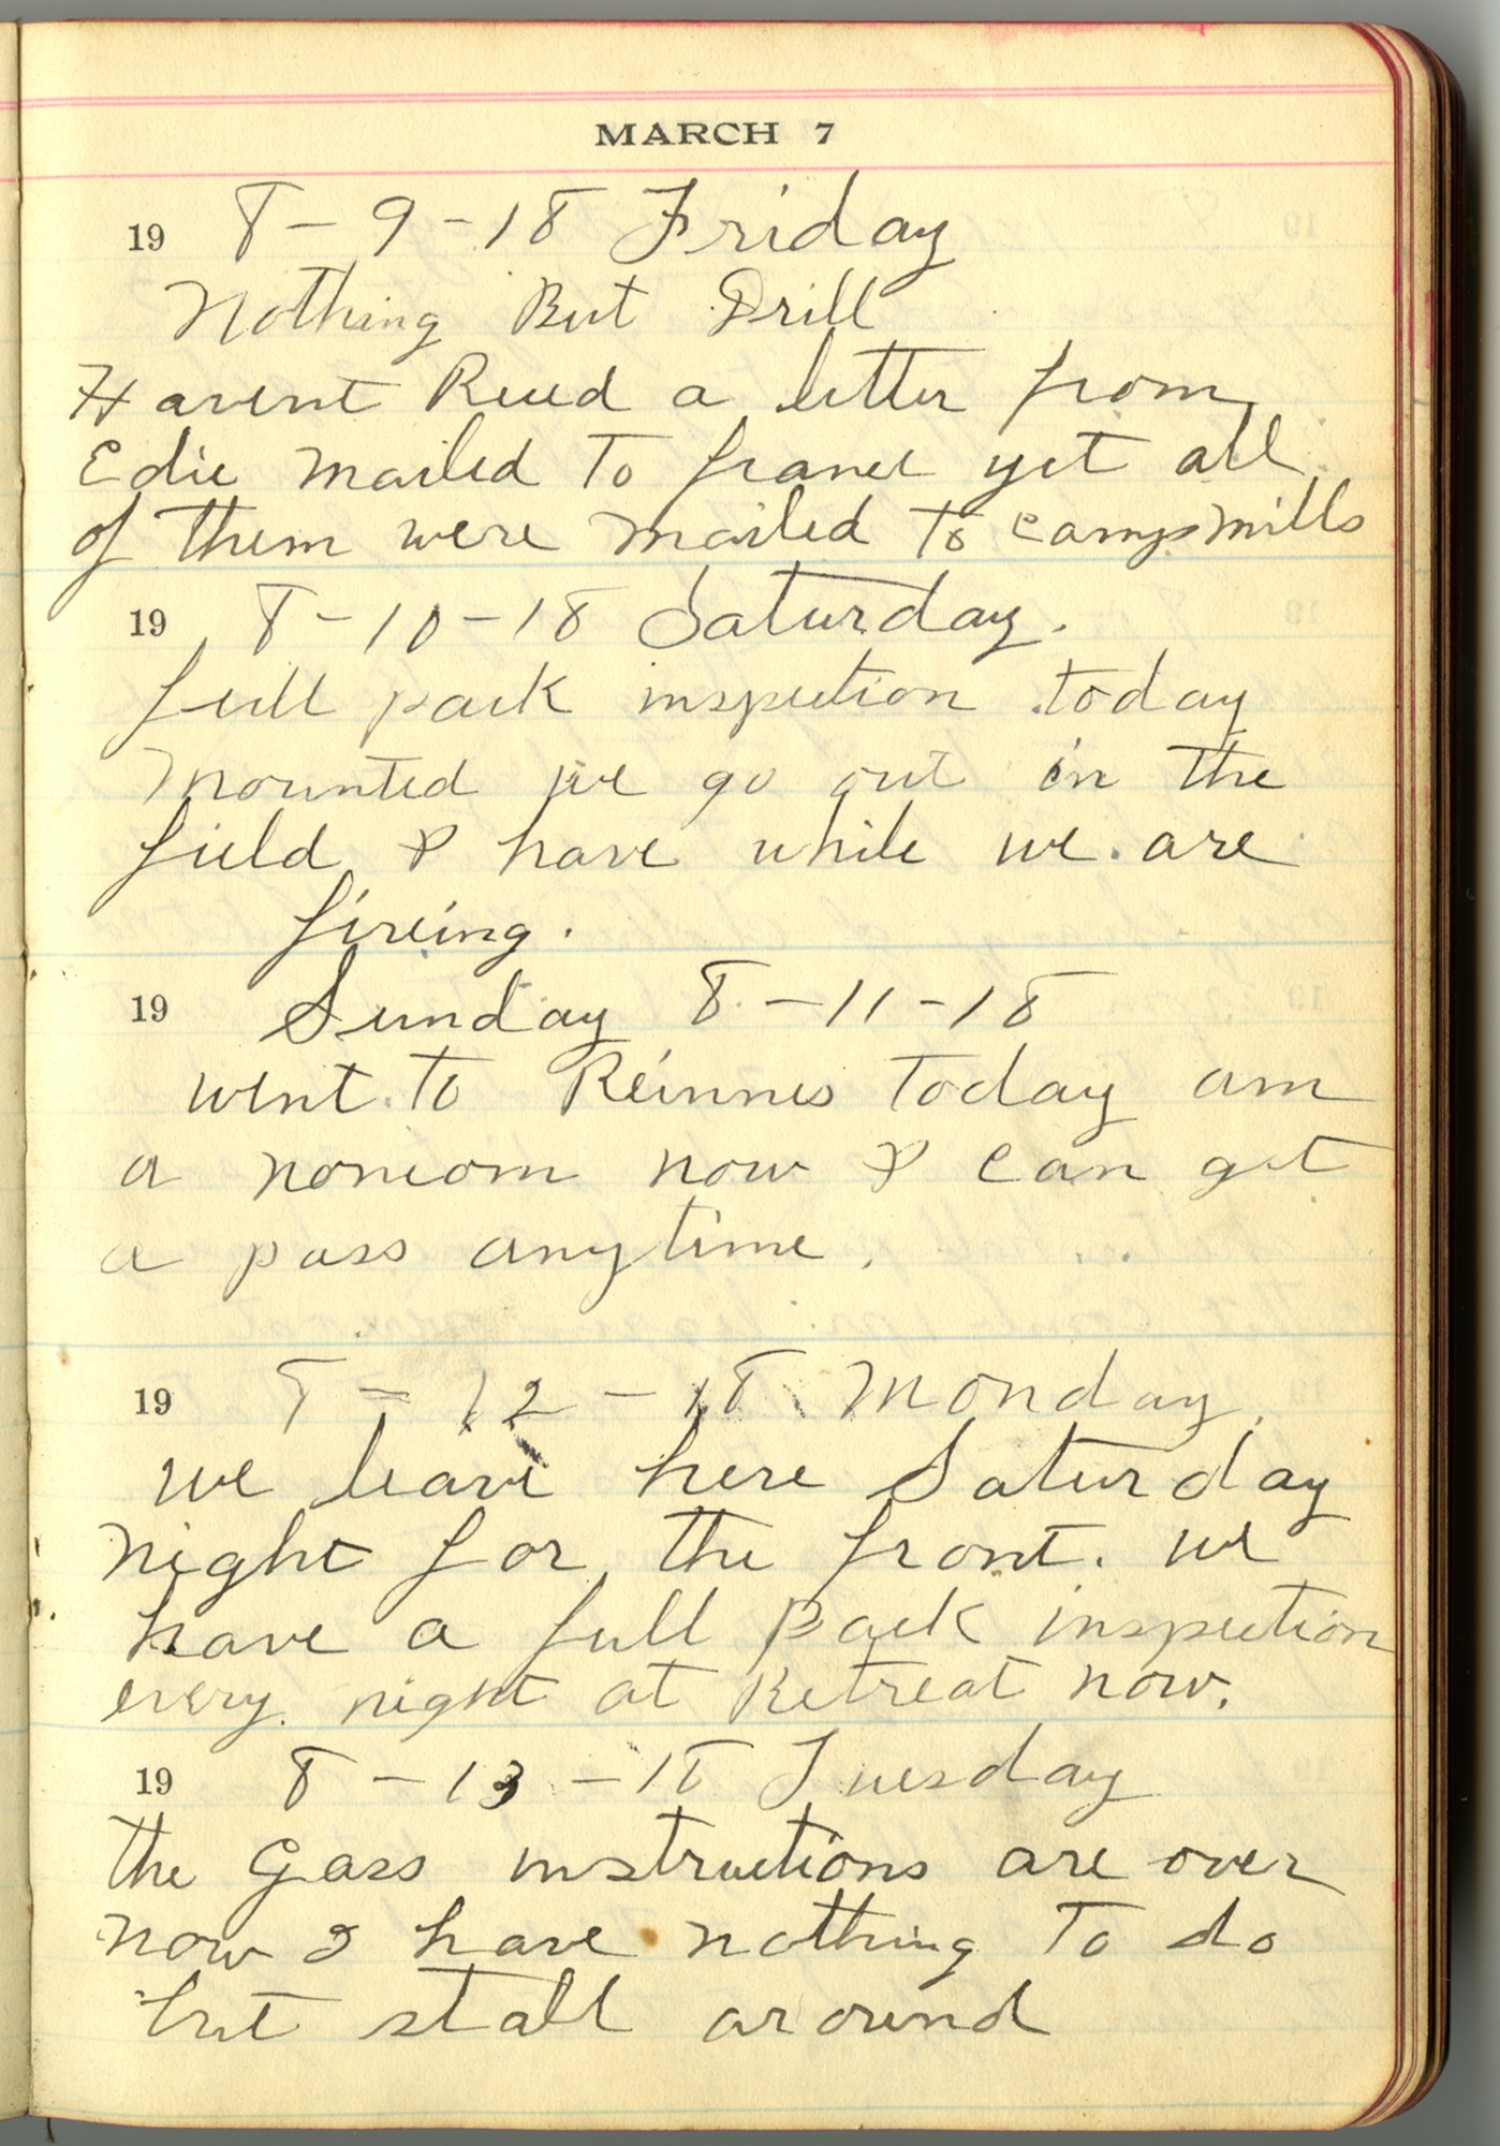 MARCH 7
19 8-9-18 Friday
Nothing But Drill
Havent Recd a letter from
Edie mailed to france yet all
of them were mailed to camp mills
19 8-10-18 Saturday.
full pack inspection today
mounted we go out in the
field I have while we are
fireing.
19 Sunday 8-11-18
went to Reinnes today am
a noncom now I can get
a pass anytime.
19 8-12-18 Monday
we leave here Saturday
night for the front. we
have a full pack inspection
every night at Retreat now.
19 8-13-18 Tuesday
the Gass instructions are over
now I have nothing to do
but stall around